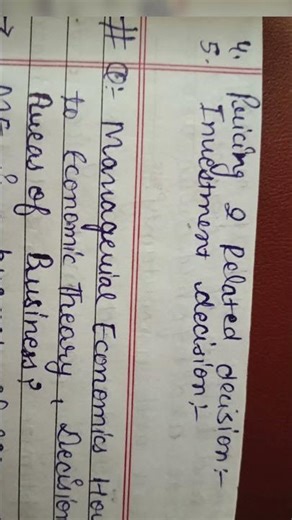 4. Pricing & Related decision:-
5. Investment decision:-
# Q:- Managerial Economics How
to Economic Theory, Decision
Areas of Business?
→ ME